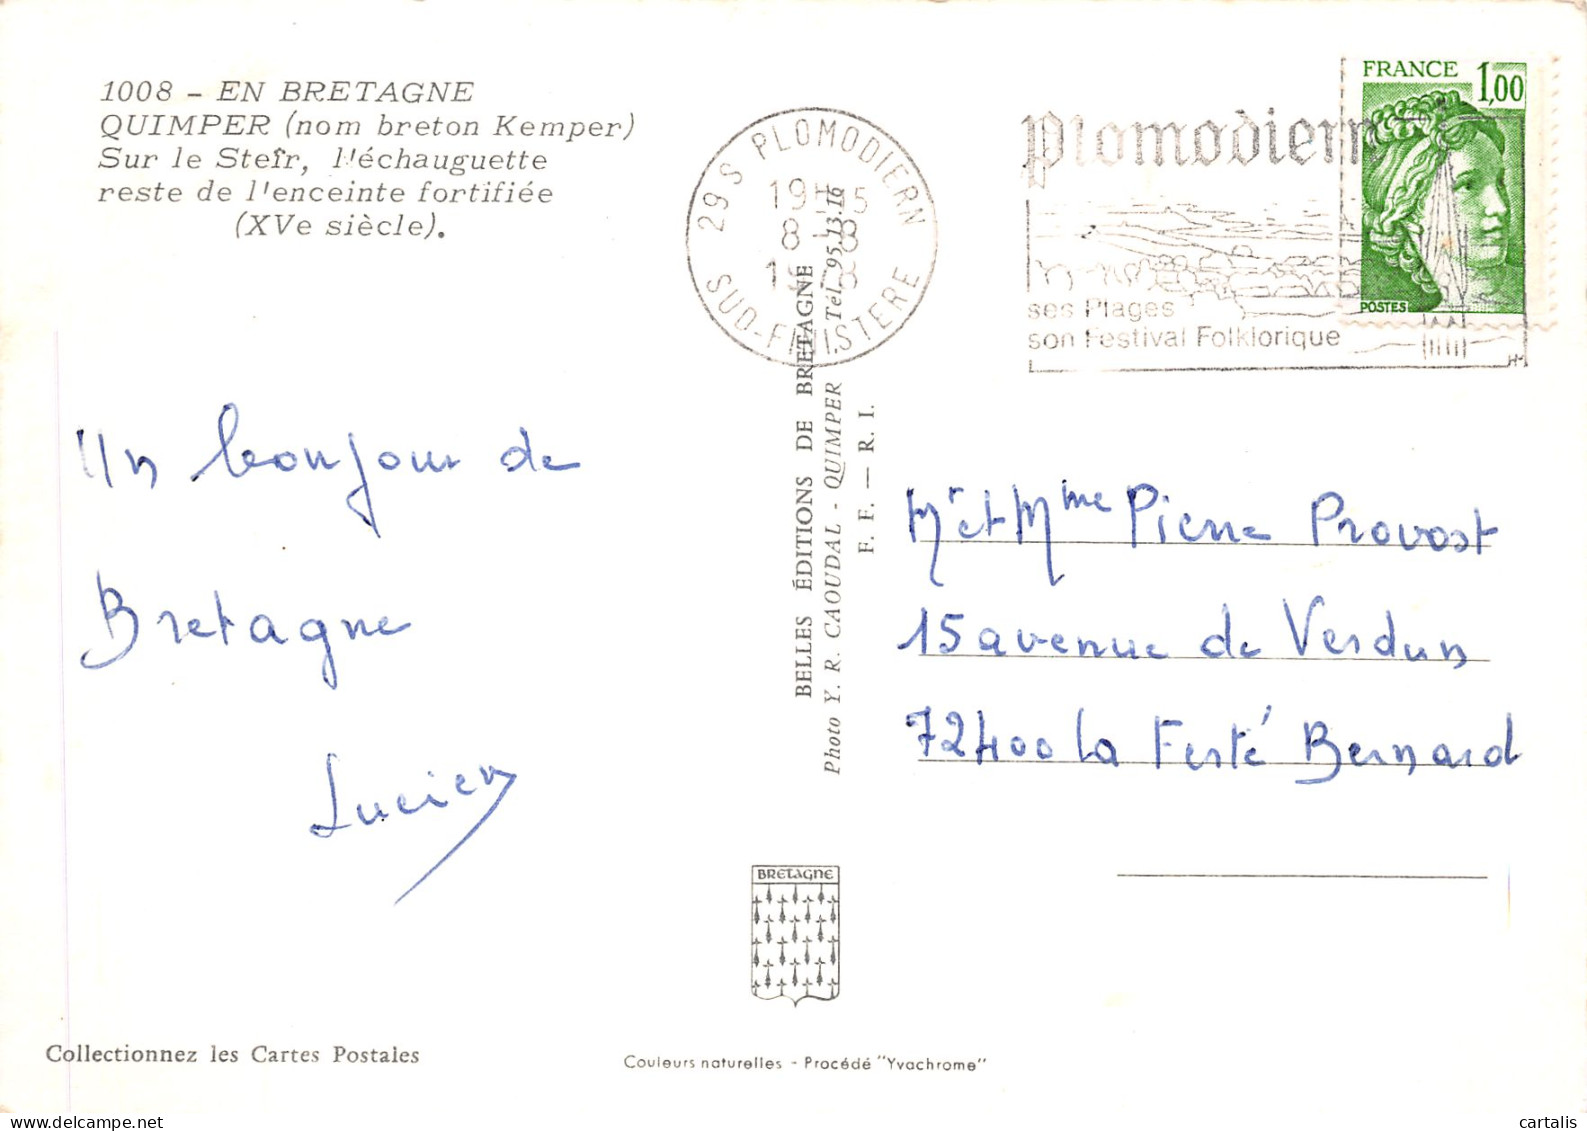 1008 - EN BRETAGNE
QUIMPER (nom breton Kemper)
Sur le Steïr, l'échauguette
reste de l'enceinte fortifiée
(XVe siècle).
Un bonjour de
Bretagne
Lucien
Collectionnez les Cartes Postales
29S PLOMODIERN
8-8
SUD-FINISTERE
BELLES ÉDITIONS DE BRETAGNE
Photo Y. R. CAOUDAL - QUIMPER Tél. 95.13.16
F. F. — R. I.
BRETAGNE
Couleurs naturelles - Procédé "Yvachrome"
Plomodiern
ses Plages
son Festival Folklorique
FRANCE 1,00
POSTES
Mr et Mme Pierre Provost
15 avenue de Verdun
72400 La Ferté Bernard
cartalis